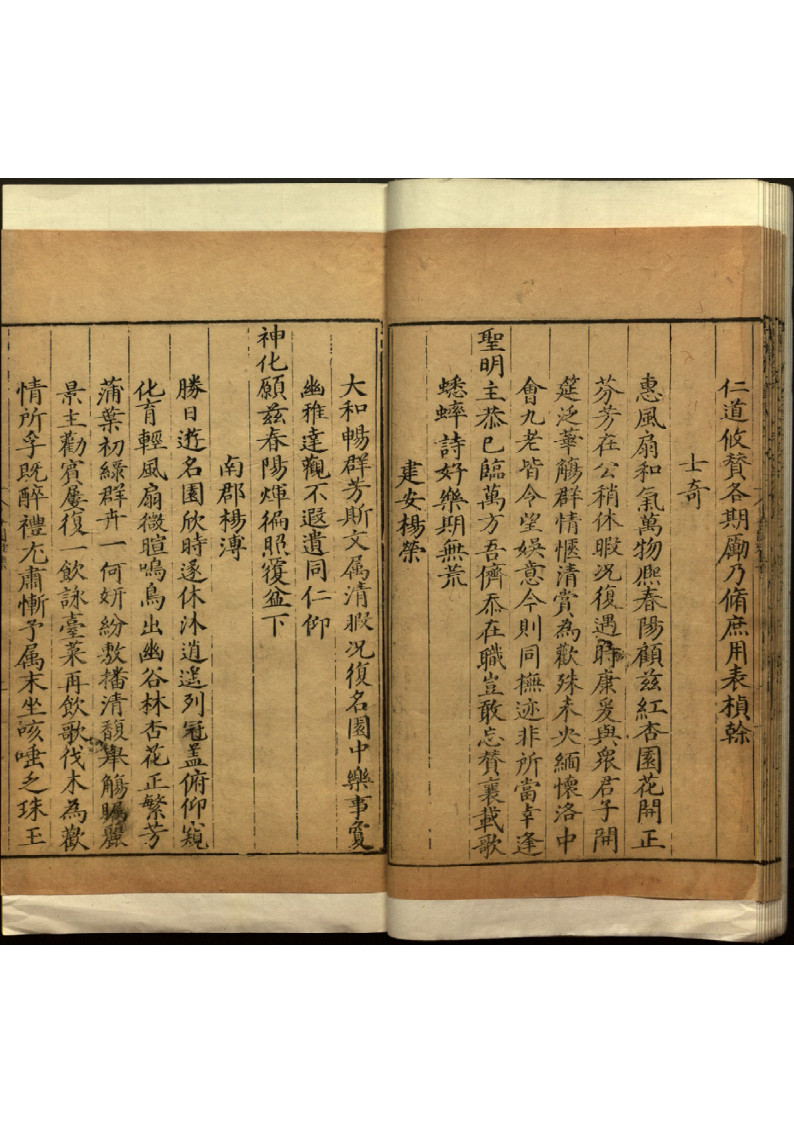 仁道攸賛各期勵乃脩庶用表楨榦
士奇
惠風扇和氣萬物熙春陽顧茲紅杏園花開正
芬芳在公稍休暇况復遇時康爰與衆君子開
筵泛華觴群情愜清賞為歡殊未央緬懷洛中
會九老皆令望娛意今則同撫迹非所當幸逢
聖明主恭已臨萬方吾儕忝在職豈敢忘賛襄載歌
蟋蟀詩好樂期無荒
建安楊榮
大和暢群芳斯文属清暇况復名園中樂事窮
幽雅達觀不遐遺同仁仰
神化願茲春陽煇徧照覆盆下
南郡楊溥
勝日遊名園欣時遂休沐逍遥列冠盖俯仰窺
化育輕風扇微暄鳴鳥出幽谷林杏花正繁芳
蒲葉初緑群卉一何妍紛敷播清馥舉觴矚麗
景主勸賓屢復一飲詠臺萊再飲歌伐木為歡
情所孚既醉禮尤肅慚予属末坐咳唾之珠玉